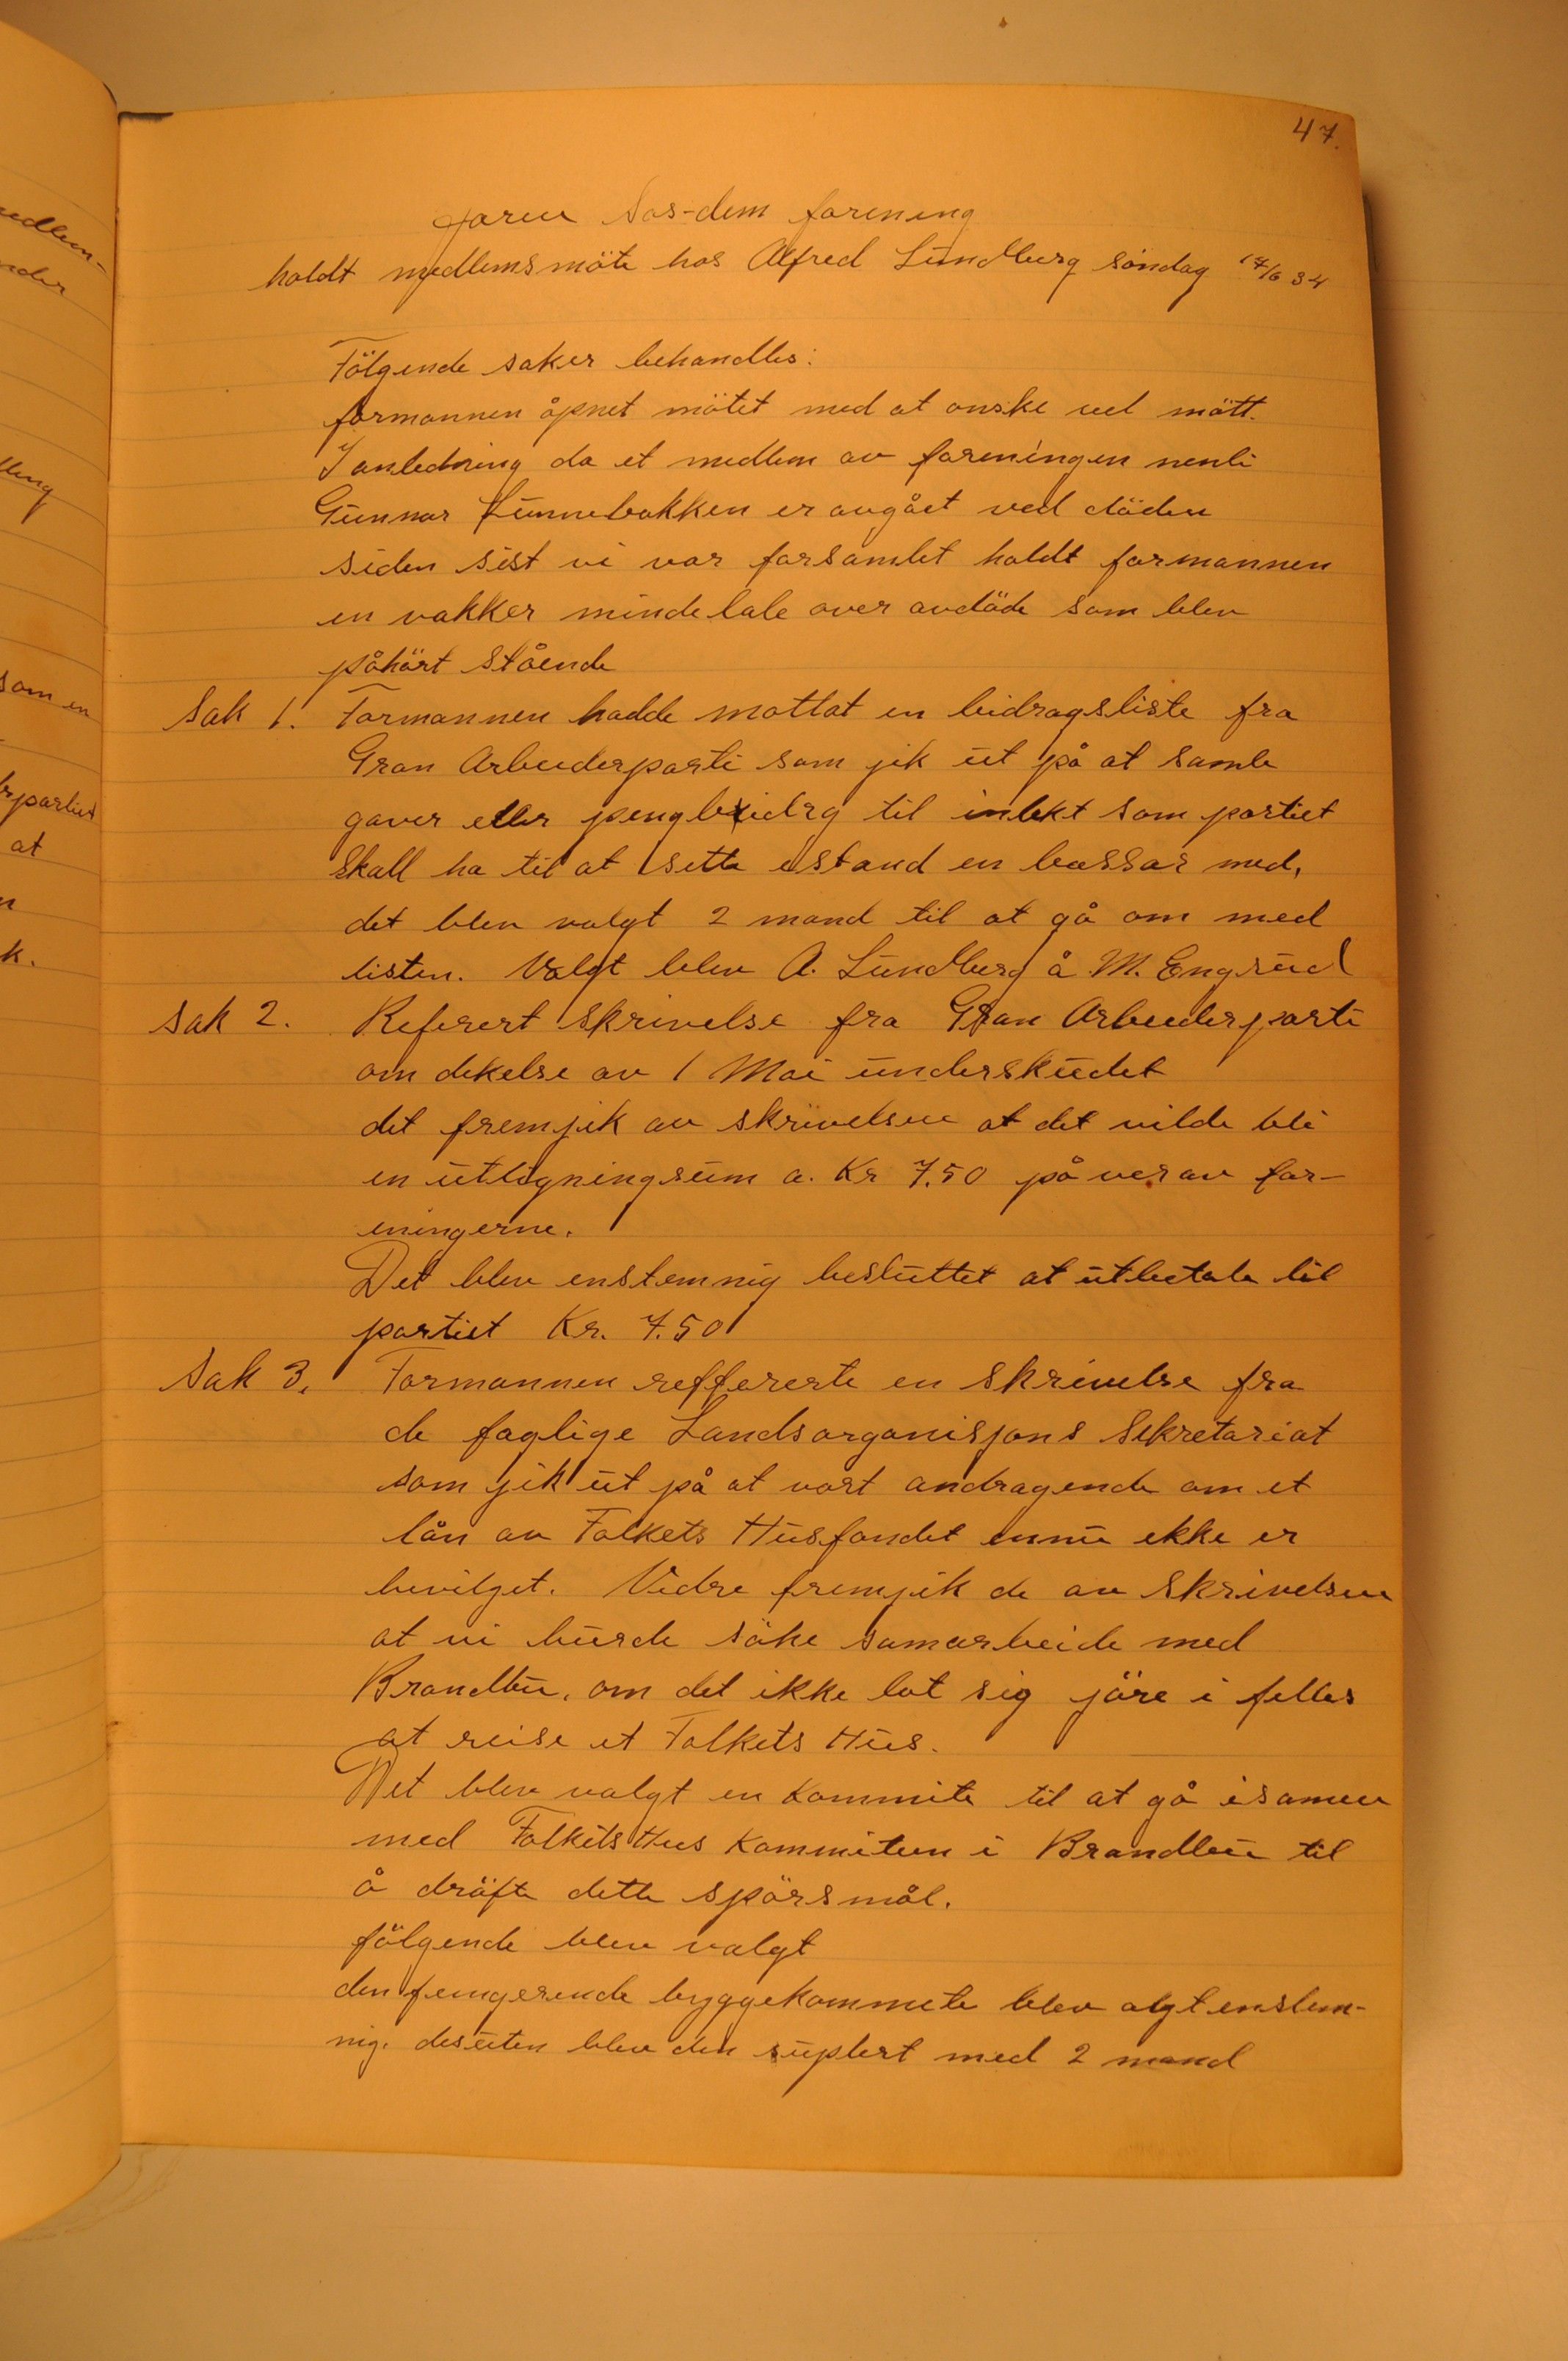 47.
Jaren Sos-dem forening
holdt medlemsmöte hos Alfred Lundberg söndag 17/6 34
Fölgende saker behandles:
formannen åpnet mötet med at onske vel mött.
I anledning da et medlem av foreningen nenli
Gunnar Lunnebakken er avgået ved döden
siden sist vi var forsamlet holdt formannen
en vakker mindetale over avdöde som blev
påhört stående
Sak 1. Formannen hadde mottat en bidragsliste fra
Gran Arbeiderparti som jik ut på at samle
gaver eller pengbeidrg til intekt som partiet
skall ha til at sette istand en bassar med,
det blev valgt 2 mand til at gå om med
listen. Valgt blev A. Lundberg å M. Engrud
Sak 2. Referert skrivelse fra Gran Arbeiderparti
om dekelse av 1 Mai underskudet
det fremjik av skrivelsen at det vilde bli
en utligningsum a. Kr 7.50 på ver av for-
eningerne.
Det blev enstemnig besluttet at utbetale til
partiet Kr. 7.50
Sak 3. Formannen reffererte en skrivelse fra
de faglige Landsorganisjons Sekretariat
som jik ut på at vort andragende om et
lån av Folkets Husfondet ennu ikke er
bevilget. Vidre fremjik de av skrivelsen
at vi burde söke samarbeide med
Brandbu, om det ikke lot sig jöre i felles
at reise et Folkets Hus.
Det blev valgt en Kommite til at gå isamen
med Folkets Hus Kommiteen i Brandbu til
å dröfte dette spörsmål.
fölgende blev valgt
den fungerende byggekommete blev algt enstem-
nig. desuten blev den suplert med 2 mand